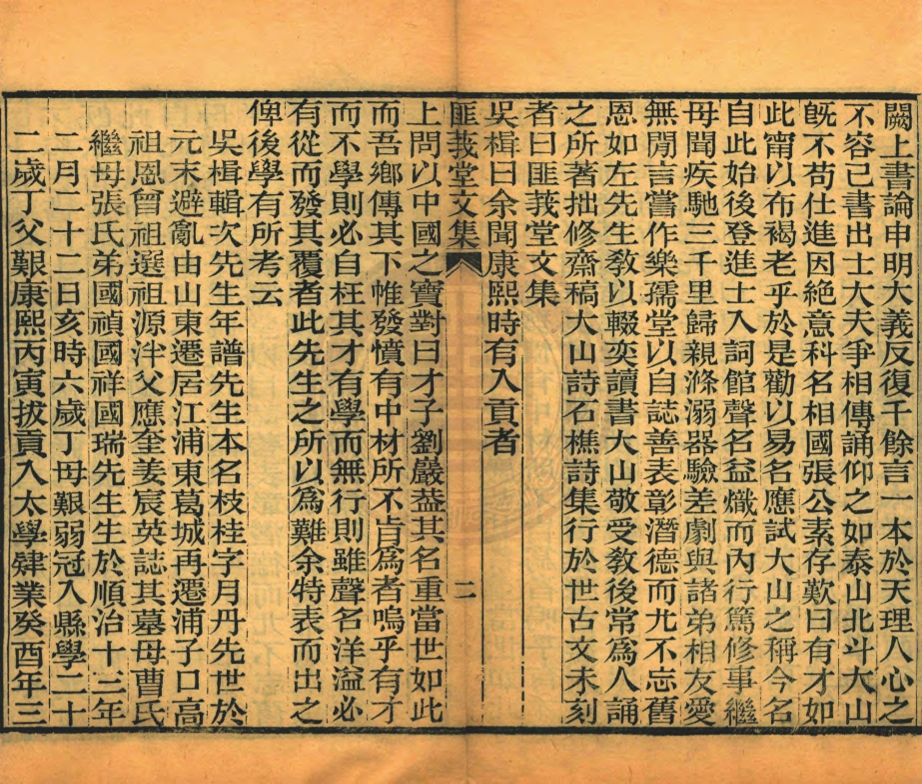 闕上書論申明大義反復千餘言一本於天理人心之
不容已書出士大夫爭相傳誦仰之如泰山北斗大山
旣不苟仕進因絕意科名相國張公素存歎曰有才如
此甯以布褐老乎於是勸以易名應試大山之稱今名
自此始後登進士入詞館聲名益熾而內行篤修事繼
母聞疾馳三千里歸親滌溺器驗差劇與諸弟相友愛
無閒言嘗作樂孺堂以自誌善表彰潛德而尤不忘舊
恩如左先生敎以輟奕讀書大山敬受敎後常爲人誦
之所著拙修齋稿大山詩石樵詩集行於世古文未刻
者曰匪莪堂文集
吳楫曰余聞康熙時有入貢者
匪莪堂文集 二
上問以中國之寶對曰才子劉嚴葢其名重當世如此
而吾鄉傳其下帷發憤有中材所不肯爲者嗚乎有才
而不學則必自枉其才有學而無行則雖聲名洋溢必
有從而發其覆者此先生之所以爲難余特表而出之
俾後學有所考云
吳楫輯次先生年譜先生本名枝桂字月丹先世於
元末避亂由山東遷居江浦東葛城再遷浦子口高
祖恩曾祖選祖源泮父應奎姜宸英誌其墓母曹氏
繼母張氏弟國禎國祥國瑞先生生於順治十三年
二月二十二日亥時六歲丁母艱弱冠入縣學二十
二歲丁父艱康熙丙寅拔貢入太學肄業癸酉年三